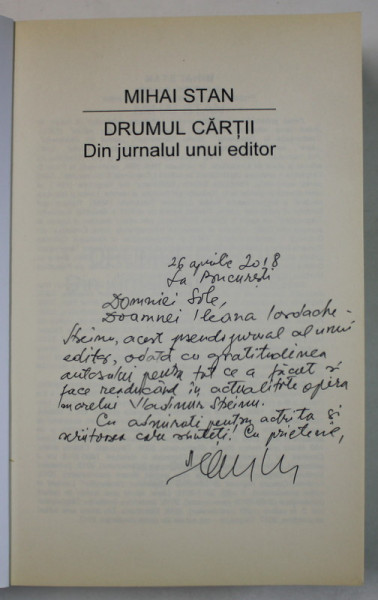 MIHAI STAN
DRUMUL CĂRȚII
Din jurnalul unui editor
26 aprilie 2018
La București
Domniei Sale,
Doamnei Ileana Iordache-
Streinu, acest pseudojurnal al unui
editor, odată cu gratitudinea
autorului pentru tot ce a făcut și
face readucând în actualitate opera
marelui Vladimir Streinu.
Cu admirație pentru actrița și
scriitoarea care sunteți! Cu prietenie,